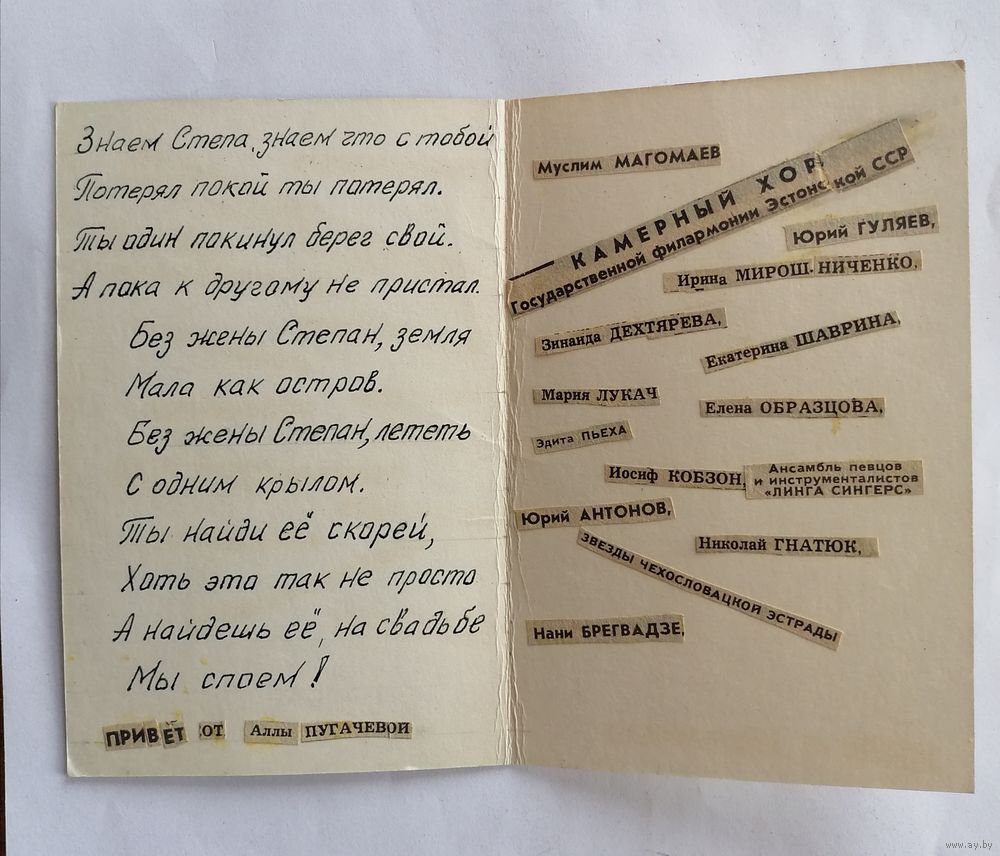 Знаем Степа, знаем что с тобой
Потерял покой ты потерял.
Ты один покинул берег свой.
А пока к другому не пристал.
Без жены Степан, земля
Мала как остров.
Без жены Степан, лететь
С одним крылом.
Ты найди её скорей,
Хоть это так не просто
А найдешь её, на свадьбе
Мы споем!
ПРИВЕТ ОТ Аллы ПУГАЧЕВОЙ
Муслим МАГОМАЕВ
— КАМЕРНЫЙ ХОР
Государственной филармонии Эстонской ССР
Юрий ГУЛЯЕВ,
Ирина МИРОШНИЧЕНКО,
Зинаида ДЕХТЯРЕВА,
Екатерина ШАВРИНА,
Мария ЛУКАЧ
Елена ОБРАЗЦОВА,
Эдита ПЬЕХА
Иосиф КОБЗОН,
Ансамбль певцов
и инструменталистов
«ЛИНГА СИНГЕРС»
Юрий АНТОНОВ,
Николай ГНАТЮК,
ЗВЕЗДЫ ЧЕХОСЛОВАЦКОЙ ЭСТРАДЫ
Нани БРЕГВАДЗЕ,
www.ay.by